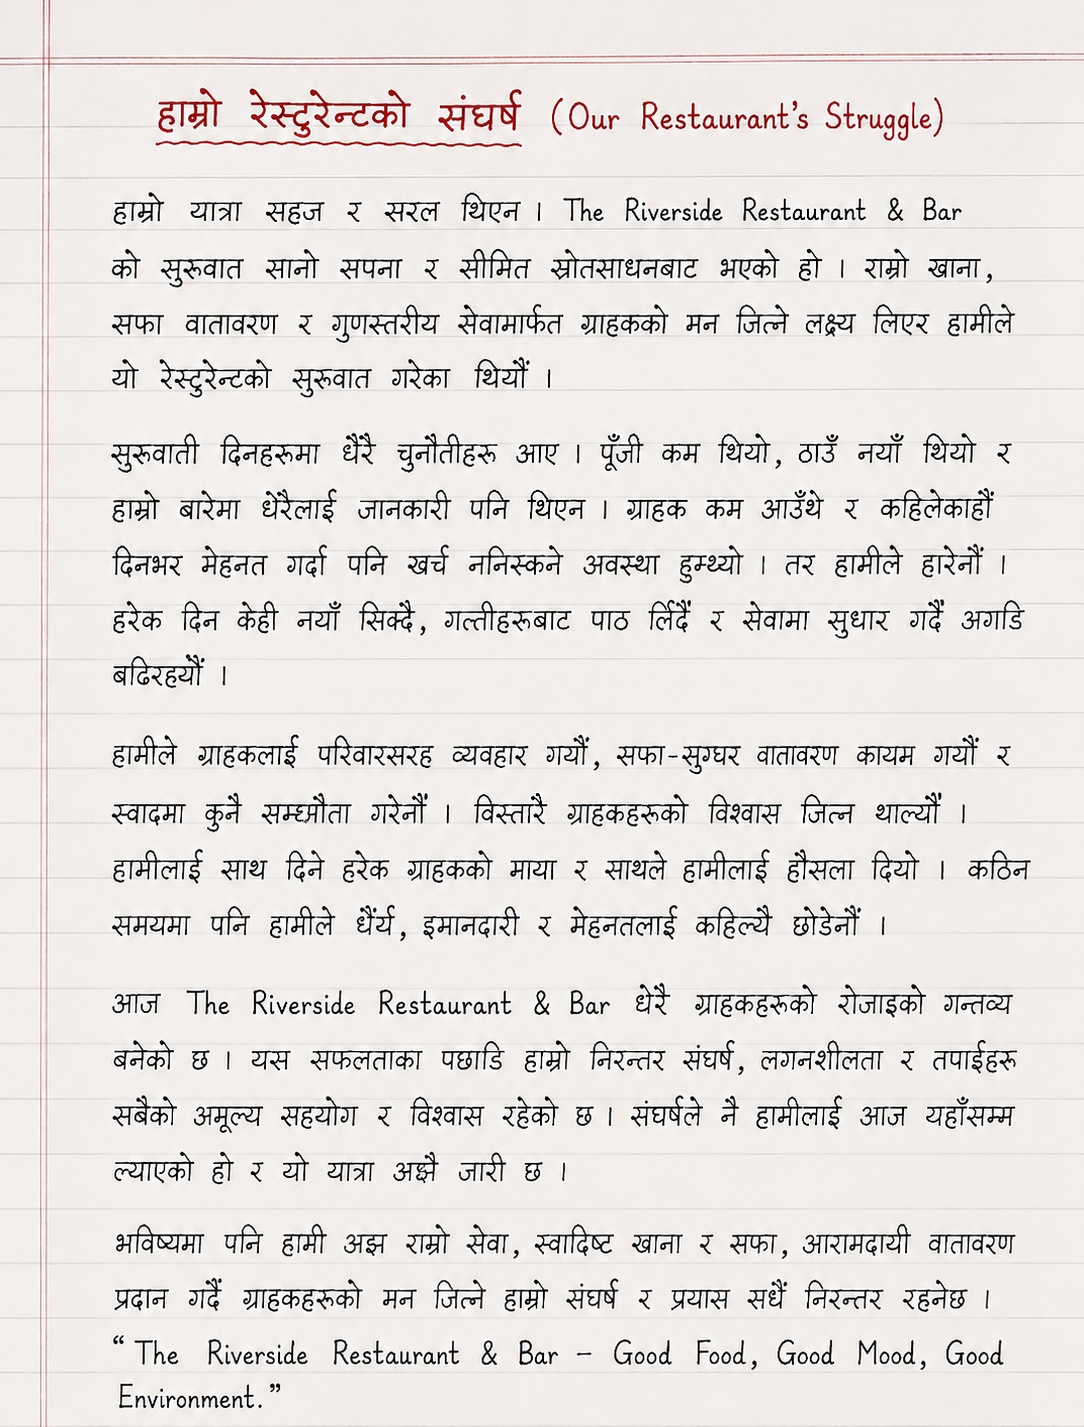 हाम्रो रेस्टुरेन्टको संघर्ष (Our Restaurant's Struggle)
हाम्रो यात्रा सहज र सरल थिएन । The Riverside Restaurant & Bar
को सुरूवात सानो सपना र सीमित स्रोतसाधनबाट भएको हो । राम्रो खाना,
सफा वातावरण र गुणस्तरीय सेवामार्फत ग्राहकको मन जित्ने लक्ष्य लिएर हामीले
यो रेस्टुरेन्टको सुरूवात गरेका थियौं ।
सुरूवाती दिनहरूमा धैरै चुनौतीहरू आए । पूँजी कम थियो, ठाउँ नयाँ थियो र
हाम्रो बारेमा धेरैलाई जानकारी पनि थिएन । ग्राहक कम आउँथे र कहिलेकाहीं
दिनभर मेहनत गर्दा पनि खर्च ननिस्कने अवस्था हुम्थ्यो । तर हामीले हारेनौं ।
हरेक दिन केही नयाँ सिक्दै, गल्तीहरूबाट पाठ लिंदैं र सेवामा सुधार गर्दै अगडि
बढिरहयौं ।
हामीले ग्राहकलाई परिवारसरह व्यवहार गर्यौं, सफा-सुग्घर वातावरण कायम गर्यौं र
स्वादमा कुनै सम्झौता गरेनौं । विस्तारै ग्राहकहरूको विश्वास जित्न थाल्यौं ।
हामीलाई साथ दिने हरेक ग्राहकको माया र साथले हामीलाई हौसला दियो । कठिन
समयमा पनि हामीले धैर्य, इमानदारी र मेहनतलाई कहिल्यै छोडेनौं ।
आज The Riverside Restaurant & Bar धेरै ग्राहकहरूको रोजाइको गन्तव्य
बनेको छ । यस सफलताका पछाडि हाम्रो निरन्तर संघर्ष, लगनशीलता र तपाईहरू
सबैको अमूल्य सहयोग र विश्वास रहेको छ । संघर्षले नै हामीलाई आज यहाँसम्म
ल्याएको हो र यो यात्रा अझै जारी छ ।
भविष्यमा पनि हामी अझ राम्रो सेवा, स्वादिष्ट खाना र सफा, आरामदायी वातावरण
प्रदान गर्दै ग्राहकहरूको मन जित्ने हाम्रो संघर्ष र प्रयास सधैं निरन्तर रहनेछ ।
“ The Riverside Restaurant & Bar – Good Food, Good Mood, Good
Environment.”